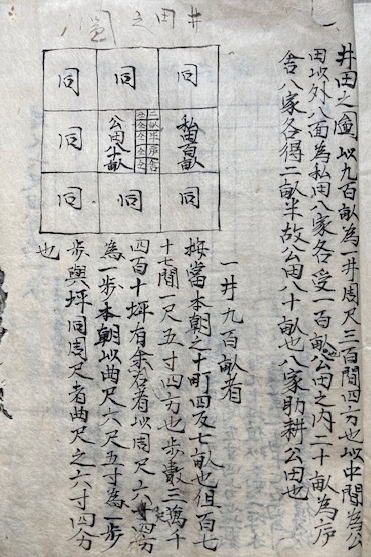 井田之圖以九百畝為一井周尺三百間四方也以中間為公
田以外八面為私田八家各受一百畝公田之内二十畝為庐
舎八家各得二畝半故公田八十畝也八家助耕公田也
井田之圖
同 同 同
私田百畝
二畝半庐舎
公田八十畝
同
同 同 同
一井九百畝者
按當本朝之十町四反七畝也但百七
十七間一尺五寸四方也歩數三萬千
四百十坪有余者以周尺六尺四方
為一歩本朝以曲尺六尺五寸為一歩
歩與坪同周尺者曲尺之六寸四分
也